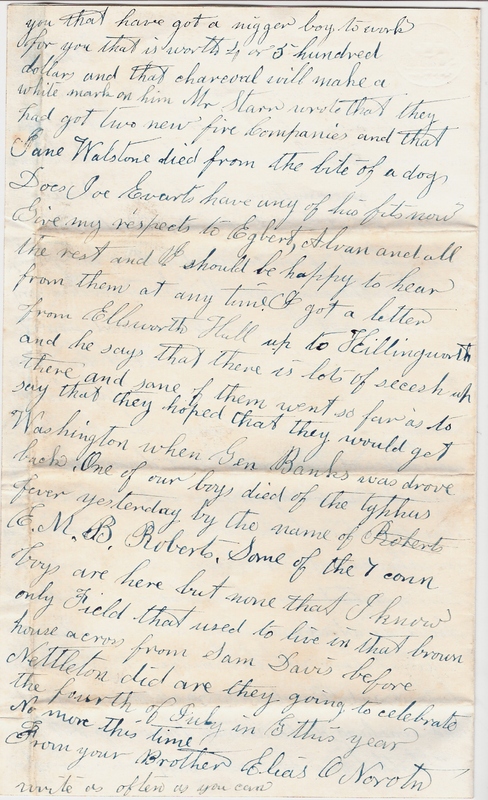 you that have got a nigger boy to work
for you that is worth 4 or 5 hundred
dollars and that charcoal will make a
white mark on him Mr Starr wrote that they
had got two new fire Companies and that
Jane Walstone died from the bite of a dog
Does Joe Evarts have any of his fits now
Give my respects to Egbert, Alvan and all
the rest and I should be happy to hear
from them at any time. I got a letter
from Ellsworth Hull up to Killingworth
and he says that there is lots of secesh up
there and some of them went so far as to
say that they hoped that they would get
Washington when Gen Banks was drove
back. One of our boys died of the typhus
fever yesterday by the name of Roberts
E. M. B. Roberts. Some of the 7 conn
boys are here but none that I know
only Field that used to live in that brown
house across from Sam Davis before
Nettleton did are they going to celebrate
the fourth of July in this year
No more this time
From your Brother Elias O
write as often as you can